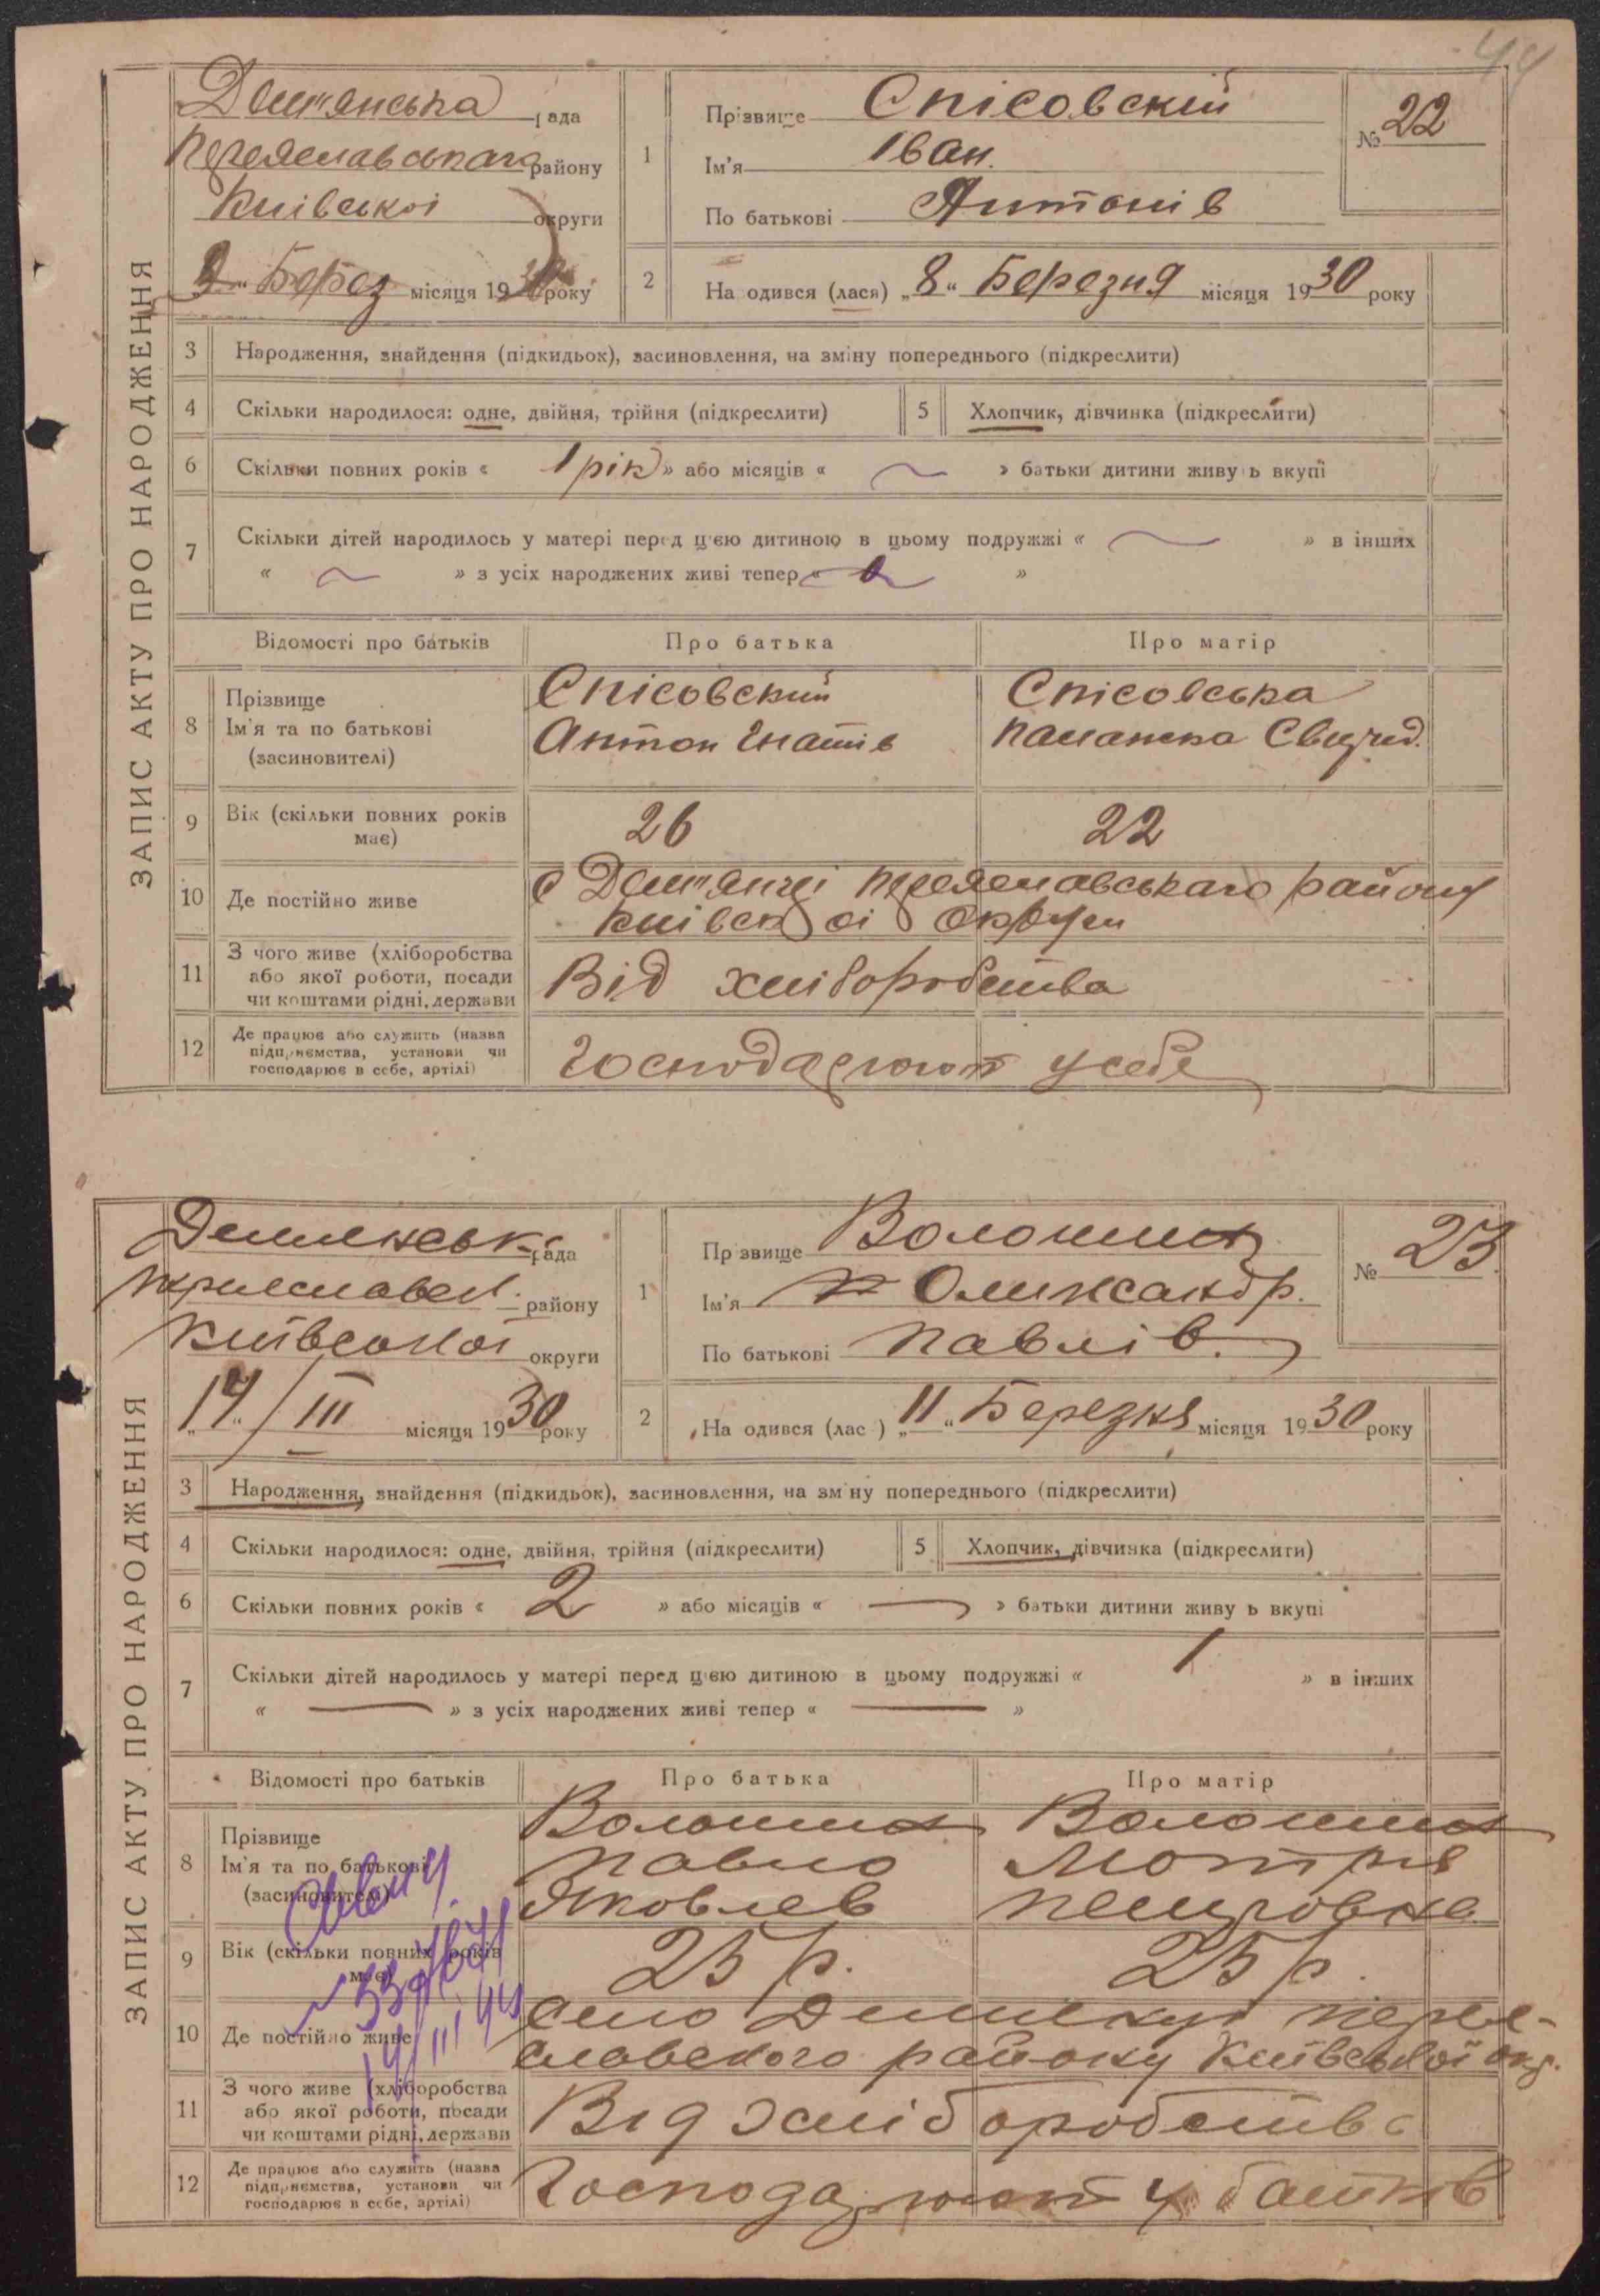 44
ЗАПИС АКТУ ПРО НАРОДЖЕННЯ
Демʼянська рада
Переяславського району
Київської округи
9 „ Берез місяця 1930 року
1
Прізвище Спісовскій
Ім'я Іван
По батькові Антонів
№ 22
2
Народився (лася) „8“ Березня місяця 1930 року
3 Народження, знайдення (підкидьок), засиновлення, на зміну попереднього (підкреслити)
4 Скільки народилося: одне, двійня, трійня (підкреслити) 5 Хлопчик, дівчинка (підкреслити)
6 Скільки повних років « 1 рік » або місяців « ~ » батьки дитини живуть вкупі
7 Скільки дітей народилось у матері перед цією дитиною в цьому подружжі « ~ » в інших
« ~ » з усіх народжених живі тепер « »
Відомості про батьків Про батька Про матір
8 Прізвище
Ім'я та по батькові
(засиновителі)
Спісовский
Антон Гнатів
Спісовська
Паланка
9 Вік (скільки повних років
має)
26 22
10 Де постійно живе
с Демʼянці Переяславського району
Київської Округи
11 З чого живе (хліборобства
або якої роботи, посади
чи коштами рідні, держави
Від хліборобства
12 Де працює або служить (назва
підприємства, установи чи
господарює в себе, артілі)
Господарюют у себе
ЗАПИС АКТУ ПРО НАРОДЖЕННЯ
Демянськ. рада
Переяславск. району
Київської округи
„14“ / III місяця 1930 року
1
Прізвище Волошин
Ім'я Олександр.
По батькові Павлів.
№ 23
2
Народився (лас ) „11“ Березня місяця 1930 року
3 Народження, знайдення (підкидьок), засиновлення, на зміну попереднього (підкреслити)
4 Скільки народилося: одне, двійня, трійня (підкреслити) 5 Хлопчик, дівчинка (підкреслити)
6 Скільки повних років « 2 » або місяців « — » батьки дитини живуть вкупі
7 Скільки дітей народилось у матері перед цією дитиною в цьому подружжі « 1 » в інших
« — » з усіх народжених живі тепер « — »
Відомості про батьків Про батька Про матір
8 Прізвище
Ім'я та по батькові
(засиновителі)
Волошин
Павло
Яковлев
Волошин
Мотря
Петровна
9 Вік (скільки повних років
має)
25 р. 25 р.
10 Де постійно живе
село Демянці Перея-
славского району Київської окр.
11 З чого живе (хліборобства
або якої роботи, посади
чи коштами рідні, держави
Від хліборобства
12 Де працює або служить (назва
підприємства, установи чи
господарює в себе, артілі)
Господарюют у батьків